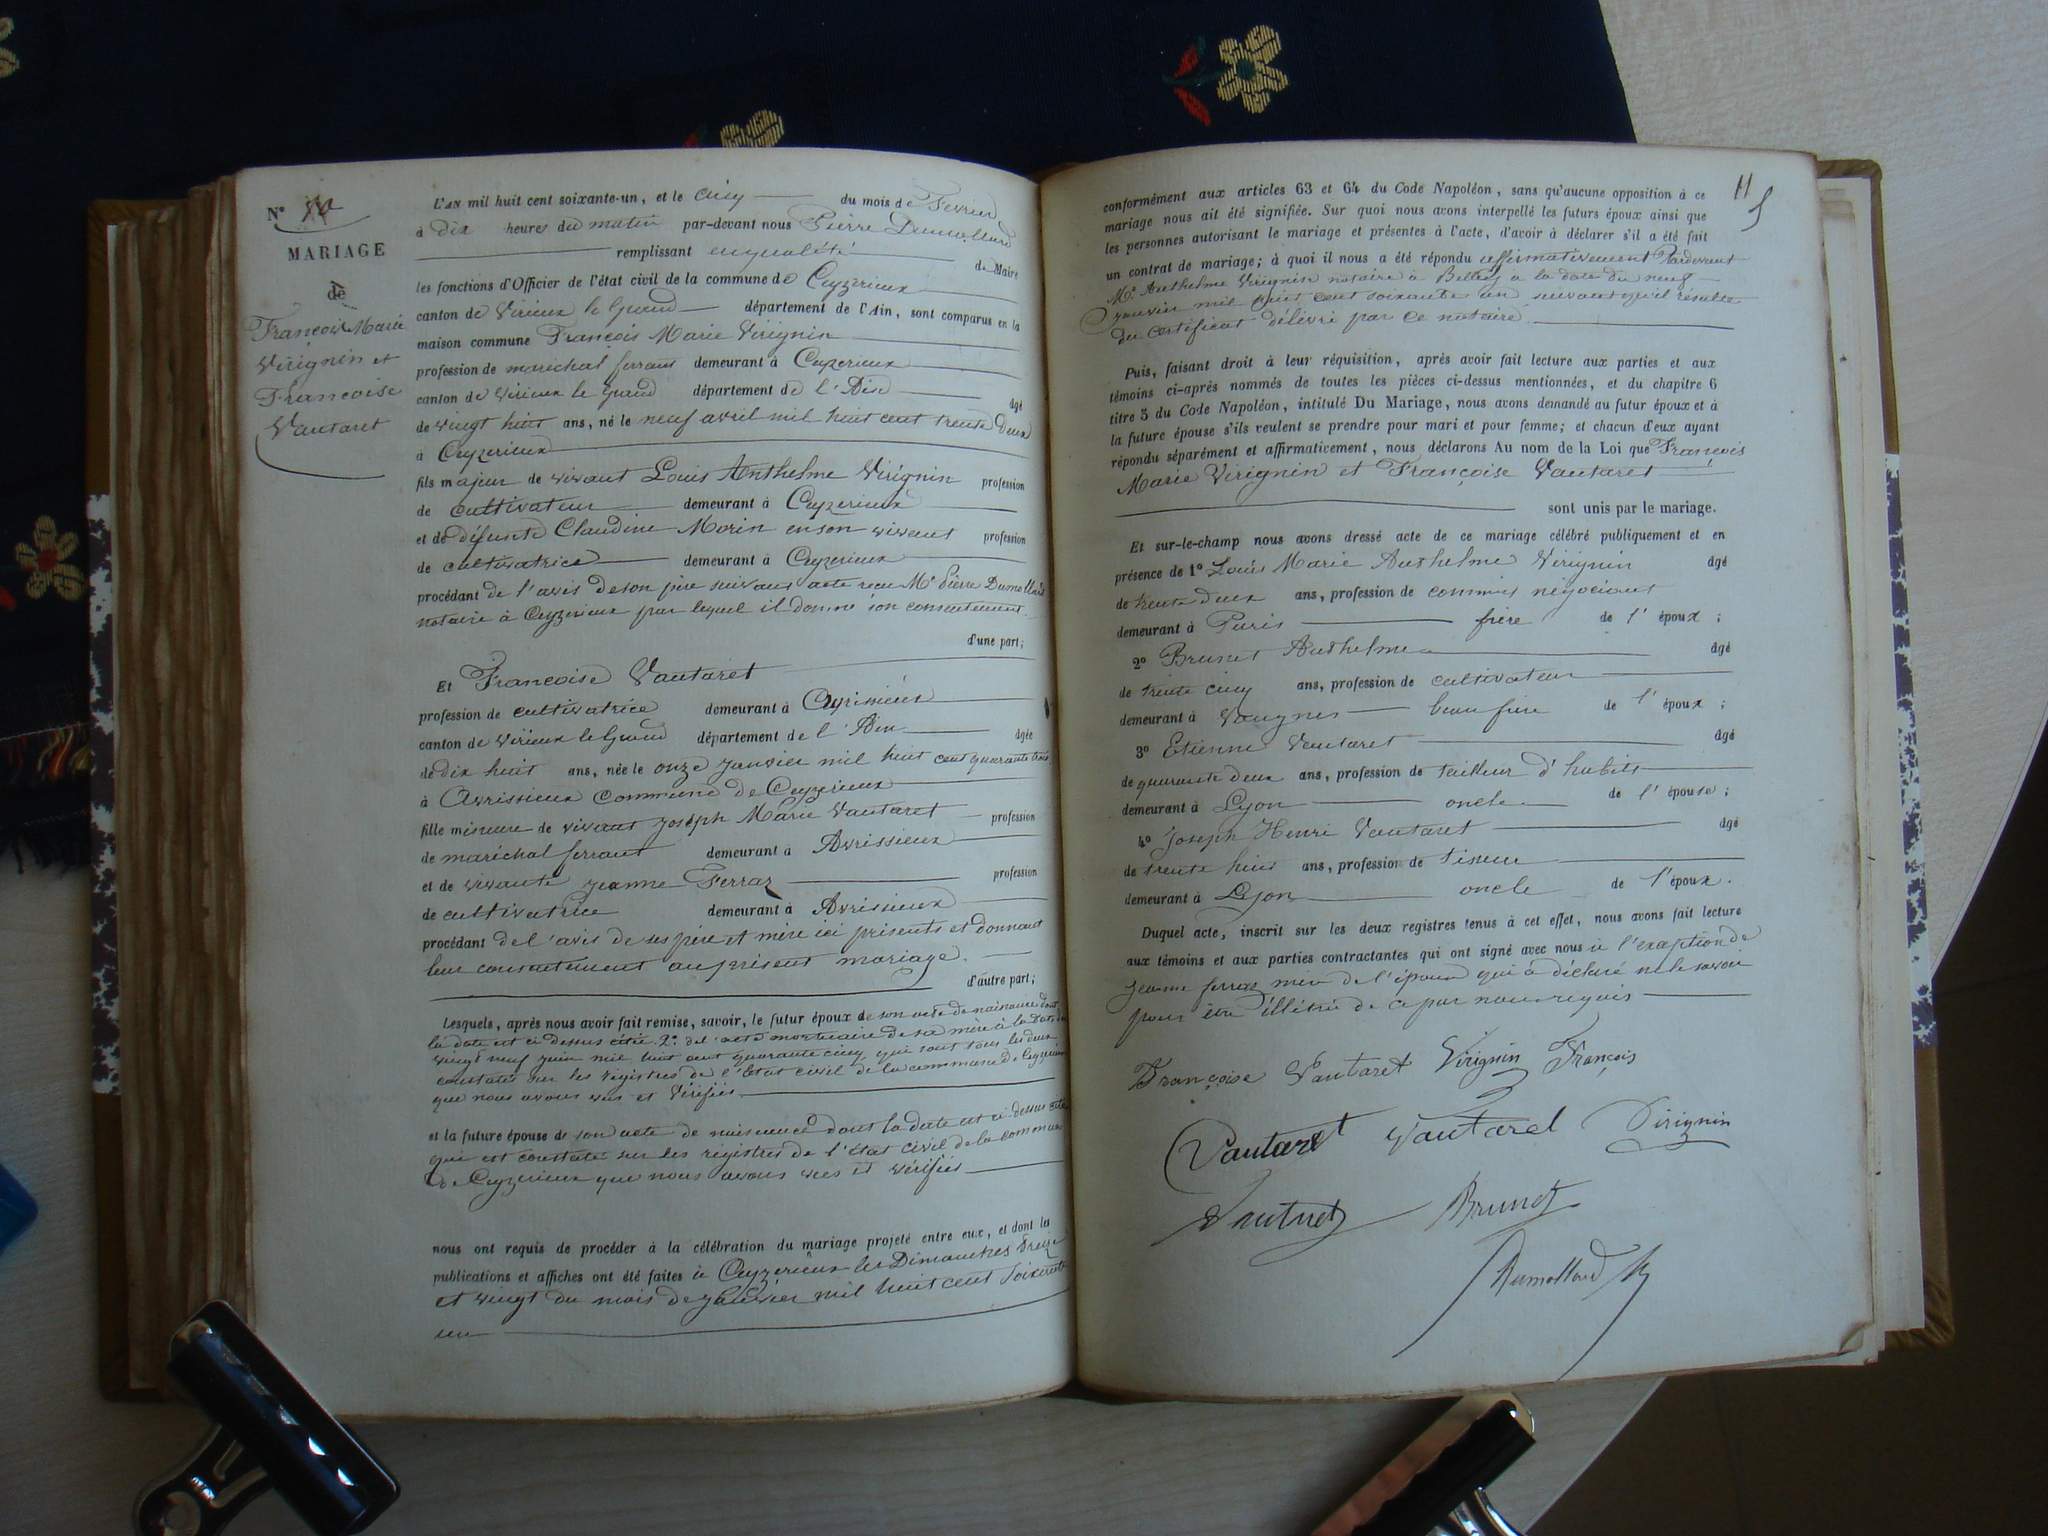 N°
MARIAGE
de
François Marie
Virignin et
Françoise
Vautaret
L'AN mil huit cent soixante-un, et le cinq du mois de Fevrier
à dix heures du matin par-devant nous Pierre Dumollard
remplissant en qualité de Maire
les fonctions d'Officier de l'état civil de la commune de Ceyzerieux
canton de Virieux le Grand département de l'Ain, sont comparus en la
maison commune François Marie Virignin
profession de maréchal ferrant demeurant à Ceyzerieux
canton de Virieux le Grand département de l'Ain âgé
de vingt huit ans, né le neuf avril mil huit cent trente deux
à Ceyzerieux
fils majeur de vivant Louis Anthelme Virignin profession
de cultivateur demeurant à Ceyzerieux
et de défunte Claudine Morin en son vivant profession
de cultivatrice demeurant à Ceyzerieux
procédant de l'avis de son père suivant acte reçu Me Pierre Dumollard
notaire à Ceyzerieux par lequel il donne son consentement.
d'une part;
Et Françoise Vautaret
profession de cultivatrice demeurant à
canton de Virieux le Grand département de l'Ain âgée
de dix huit ans, née le onze janvier mil huit cent quarante trois
à Avrissieux commune de Ceyzerieux
fille mineure de vivant joseph Marie Vautaret profession
de maréchal ferrant demeurant à Avrissieux
et de vivante jeanne Ferraz profession
de cultivatrice demeurant à Avrissieux
procédant de l'avis de ses père et mère ici présents et donnant
leur consentement au présent mariage.
d'autre part;
Lesquels, après nous avoir fait remise, savoir, le futur époux de son acte de naissance dont
la date est ci dessus citée 2° de l'acte mortuaire de sa mère à la date du
vingt neuf juin mil huit cent quarante cinq que sont tous les deux
constatés sur les registres de l'Etat civil de la commune de Ceyzerieux
que nous avons vus et vérifiés
et la future épouse de son acte de naissance dont la date est ci-dessus citée
qui est constaté sur les registres de l'état civil de la commune
de Ceyzerieux que nous avons vus et vérifiés
nous ont requis de procéder à la célébration du mariage projeté entre eux, et dont les
publications et affiches ont été faites à Ceyzerieux les Dimanches treize
et vingt du mois de janvier mil huit cent soixante
un
11
conformément aux articles 63 et 64 du Code Napoléon, sans qu'aucune opposition à ce
mariage nous ait été signifiée. Sur quoi nous avons interpellé les futurs époux ainsi que
les personnes autorisant le mariage et présentes à l'acte, d'avoir à déclarer s'il a été fait
un contrat de mariage; à quoi il nous a été répondu affirmativement Pardevant
Me Anthelme Virignin notaire à Belley a la date du neuf
janvier mil huit cent soixante un suivant qu'il résulte
du certificat délivré par ce notaire.
Puis, faisant droit à leur réquisition, après avoir fait lecture aux parties et aux
témoins ci-après nommés de toutes les pièces ci-dessus mentionnées, et du chapitre 6
titre 5 du Code Napoléon, intitulé Du Mariage, nous avons demandé au futur époux et à
la future épouse s'ils veulent se prendre pour mari et pour femme; et chacun d'eux ayant
répondu séparément et affirmativement, nous déclarons Au nom de la Loi que François
Marie Virignin et Françoise Vautaret
sont unis par le mariage.
Et sur-le-champ nous avons dressé acte de ce mariage célébré publiquement et en
présence de 1° Louis Marie Anthelme Virignin âgé
de trente deux ans, profession de commis négociant
demeurant à Paris frère de l'époux;
2° Brunet Anthelme âgé
de trente cinq ans, profession de cultivateur
demeurant à Vongnes beau frère de l'époux;
3° Etienne Vautaret âgé
de quarante deux ans, profession de tailleur d'habits
demeurant à Lyon oncle de l'épouse;
4° Joseph Henri Vautaret âgé
de trente huit ans, profession de tisseur
demeurant à Lyon oncle de l'époux.
Duquel acte, inscrit sur les deux registres tenus à cet effet, nous avons fait lecture
aux témoins et aux parties contractantes qui ont signé avec nous à l'exception de
jeanne ferraz mère de l'épouse qui a déclaré ne le savoir
pour être illétré de ce par nous requis
Françoise Vautaret Virignin François
Vautaret Vautaret Virignin
Vautaret Brunet
Dumollard